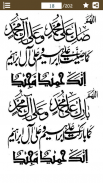 10 /203
اللهم صل على محمد وعلى آل محمد
كما صليت على إبراهيم وعلى آل إبراهيم
إنك حميد مجيد
اللهم بارك على محمد وعلى آل محمد
كما باركت على إبراهيم وعلى آل إبراهيم
إنك حميد مجيد